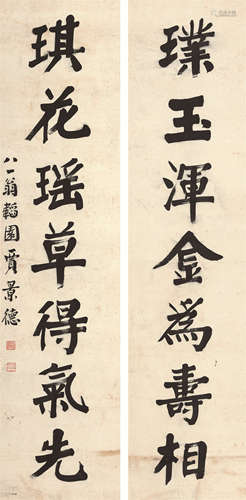 璞玉渾金為壽相
琪花瑤草得氣先
八一翁韜園賈景德